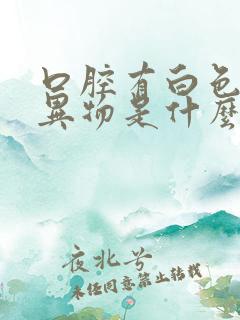 口腔有白色
异物是什么
夜北兮
未经同意禁止转载